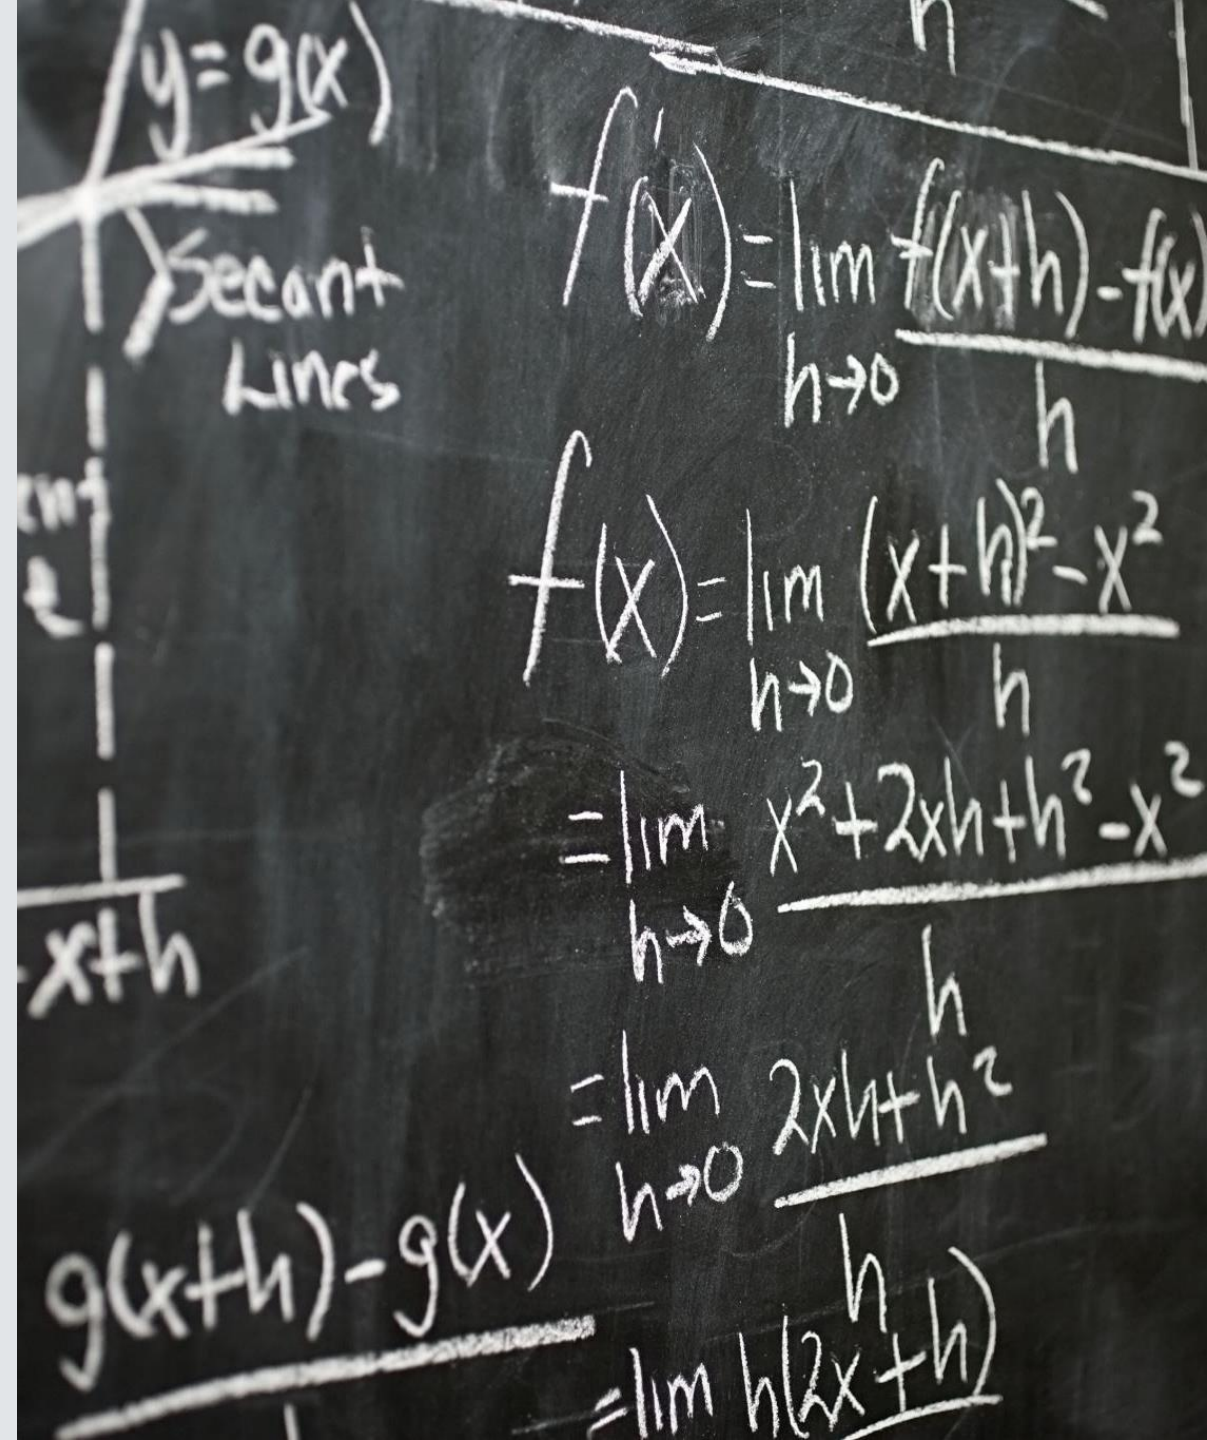 y=g(x)
Secant
Lines
x+h
g(x+h)-g(x)
h
f'(x)=lim f(x+h)-f(x)
h→0 h
f(x)=lim (x+h)²-x²
h→0 h
=lim x²+2xh+h²-x²
h→0 h
=lim 2xh+h²
h→0 h
=lim h(2x+h)